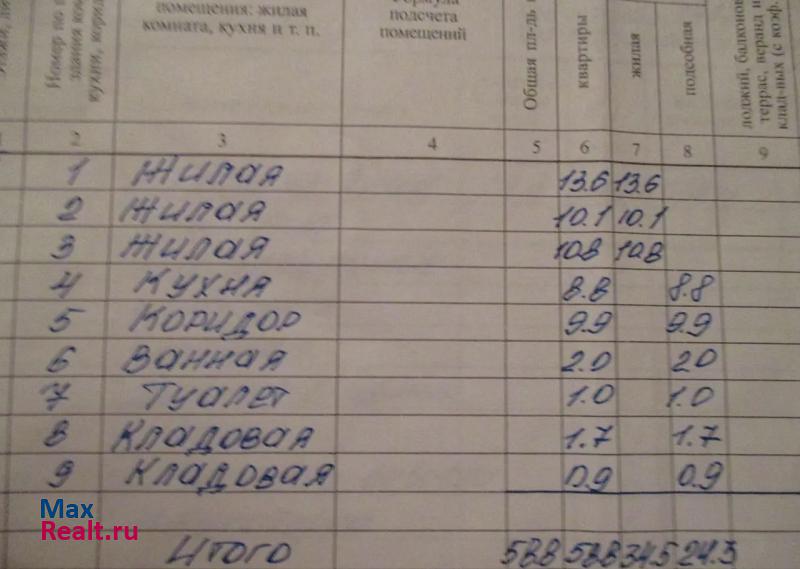 помещения: жилая комната, кухня и т. п.
Формула подсчета помещений
Общая пл-дь
квартиры
жилая
подсобная
лоджий, балконов террас, веранд и клад-ных (с коэф.
2 3 4 5 6 7 8 9
1 Жилая 13.6 13.6
2 Жилая 10.1 10.1
3 Жилая 10.8 10.8
4 Кухня 8.8 8.8
5 Коридор 9.9 9.9
6 Ванная 2.0 20
7 Туалет 1.0 1.0
8 Кладовая 1.7 1.7
9 Кладовая 0.9 0.9
Итого 58.8 58.8 34.5 24.3
Max
Realt.ru